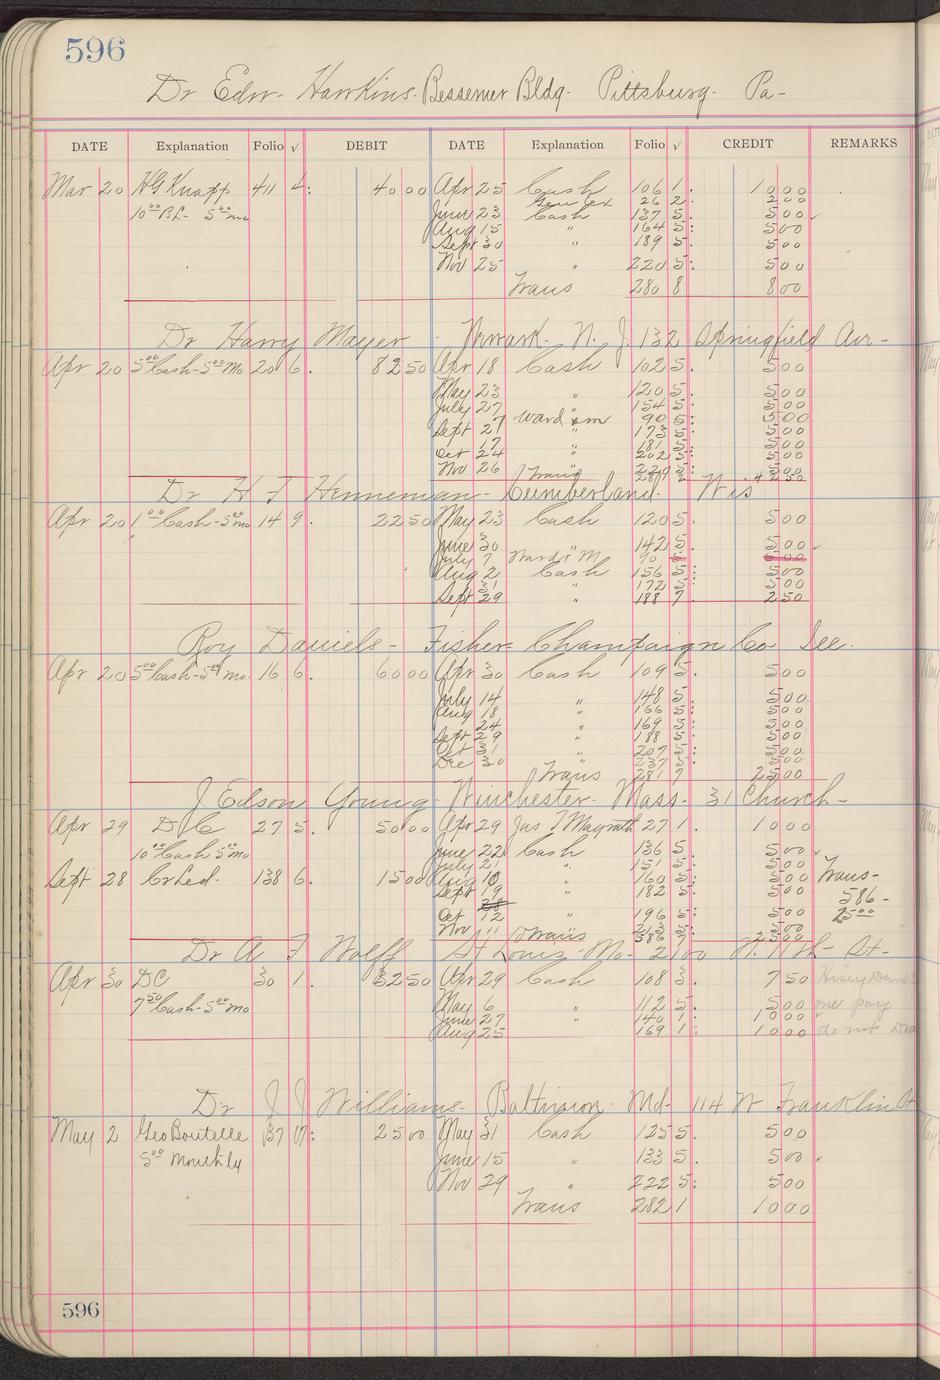 596
Dr Edw- Hawkins- Bessemer Bldg- Pittsburg- Pa-
DATE Explanation Folio √ DEBIT DATE Explanation Folio √ CREDIT REMARKS
Mar 20 HG Knapp 411 4: 4000 Apr 25 Cash 106 1. 1000
26 2. 200
10⁰⁰ BL- 5⁰⁰ mo June 23 Cash 137 5. 500
Aug 15 " 164 5: 500
Sept 30 " 189 5. 500
Nov 25 " 220 5: 500
Trans 280 8 800
Dr Harry Mayer - Newark- N. J. 132 Springfield Ave-
Apr 20 5⁰⁰ Cash-5⁰⁰ Mo 20 6. 8250 Apr 18 Cash 102 5. 500
May 23 " 120 5. 500
July 27 " 154 5: 500
Ward & m 90 5: 500
Sept 27 " 173 5: 500
17 " 181 5: 500
Oct 24 " 202 5: 500
Nov 26 " 229 5: 500
Trans 4250
Dr H F Henneman- Cumberland- Wis
Apr 20 1⁰⁰ Cash-5⁰⁰ mo 14 9. 2250 May 23 Cash 120 5. 500
June 30 " 142 5. 500
July 7 Ward & M 90 5 500
Aug 2 Cash 156 5: 500
31 " 172 5: 500
Sept 29 " 188 7. 250
Roy Daniels- Fisher- Champaign Co Ill.
Apr 20 5⁰⁰ Cash-5⁰⁰ mo- 16 6. 6000 Apr 30 Cash 109 5. 500
July 14 " 148 5. 500
Aug 18 " 166 5: 500
24 " 169 5: 500
Sept 29 " 188 5. 500
Oct 31 " 207 5: 500
Dec 30 237 5: 500
Trans 281 7 2500
J Edson Young- Winchester- Mass- 31 Church-
Apr 29 D C 27 5. 5000 Apr 29 Jas T Magrath 27 1. 1000
10⁰⁰ Cash 5⁰⁰ mo June 22 Cash 136 5. 500
July 21 " 151 5: 500
Sept 28 Cr Led. 138 6. 1500 Aug 10 " 160 5: 500 Trans-
Sept 19 " 182 5. 500 586-
28
Oct 12 " 196 5: 500 25⁰⁰
Nov 11 " 213 5: 500
Trans 586 7 2500
Dr A F Wolff St Louis- Mo- 2100 N. 11th- St-
Apr 30 DC 30 1. 3250 Apr 29 Cash 108 3. 750
7⁵⁰ Cash-5⁰⁰ Mo May 6 " 112 5. 500 me pay
June 27 140 1: 1000
Aug 25 169 1: 1000 do not
Dr J J Williams- Baltimore- Md- 114 W Franklin St
May 2 Geo Boutelle 37 17: 2500 May 31 Cash 125 5. 500
5⁰⁰ Monthly June 15 " 133 5. 500
Nov 29 " 222 5: 500
Trans 282 1 1000
596